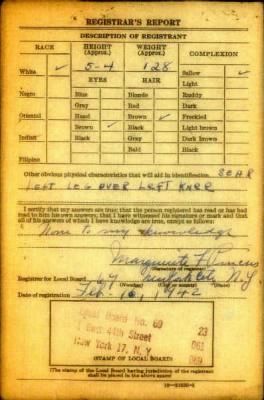 REGISTRAR'S REPORT
DESCRIPTION OF REGISTRANT
RACE HEIGHT (Approx.) WEIGHT (Approx.) COMPLEXION
White ✓ 5-4 128 Sallow ✓
EYES HAIR Light
Negro Blue Blonde Ruddy
Gray Red Dark
Oriental Hazel Brown ✓ Freckled
Brown ✓ Black Light brown
Indian Black Gray Dark brown
Bald Black
Filipino
Other obvious physical characteristics that will aid in identification SCAR
LEFT LEG OVER LEFT KNEE
I certify that my answers are true; that the person registered has read or has had
read to him his own answers; that I have witnessed his signature or mark and that
all of his answers of which I have knowledge are true, except as follows:
None to my knowledge
Marguerite F.
(Signature of registrar)
Registrar for Local Board 69 N.Y.
(Number) (City or county) (State)
Date of registration Feb. 16 1942
Local Board No. 69 23
East 44th Street 061
New York 17, N. Y. 069
(STAMP OF LOCAL BOARD)
(The stamp of the Local Board having jurisdiction of the registrant
shall be placed in the above space.)